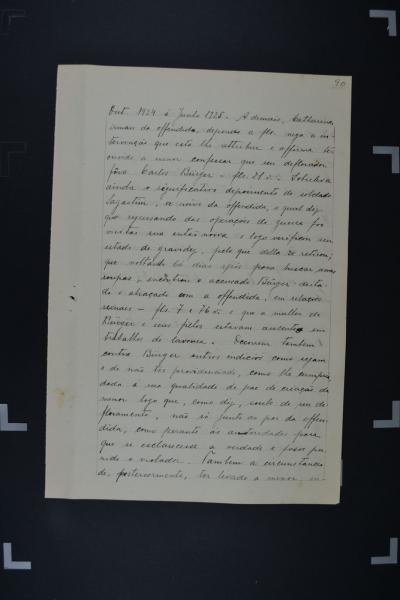 90
Out. 1924 á Junho 1925. Ademais, Catharina,
irman da offendida, depondo a fls. nega a in-
tervenção que esta lhe attribue e affirma ter
ouvido a menor confessar que seu deflorador
fôra Carlos Bürger - fls. 21 v. Sobreleva
ainda o significativo depoimento do soldado
, ex noivo da offendida, o qual diz
que regressando das operações de guerra foi
visitar sua então noiva e logo verificou seu
estado de gravidez, pelo que della se retirou;
que voltando 15 dias após para buscar umas
roupas, encontrou o accusado Bürger deita-
do e abraçado com a offendida, em relações
sexuaes - fls. 7 e 76 v. e que a mulher de
Bürger e seus filhos estavam ausentes em
trabalhos de lavoura. Occorrem tambem
contra Bürger outros indicios como sejam
o de não ter providenciado, como lhe cumpria,
dada a sua qualidade de pae de creação da
menor logo que, como diz, soube de seu de-
floramento, não só junto ao pae da offen-
dida, como perante as autoridades para
que se esclarecesse a verdade e fosse pu-
nido o violador. Tambem a circumstancia
de, posteriormente, ter levado a menor, in-